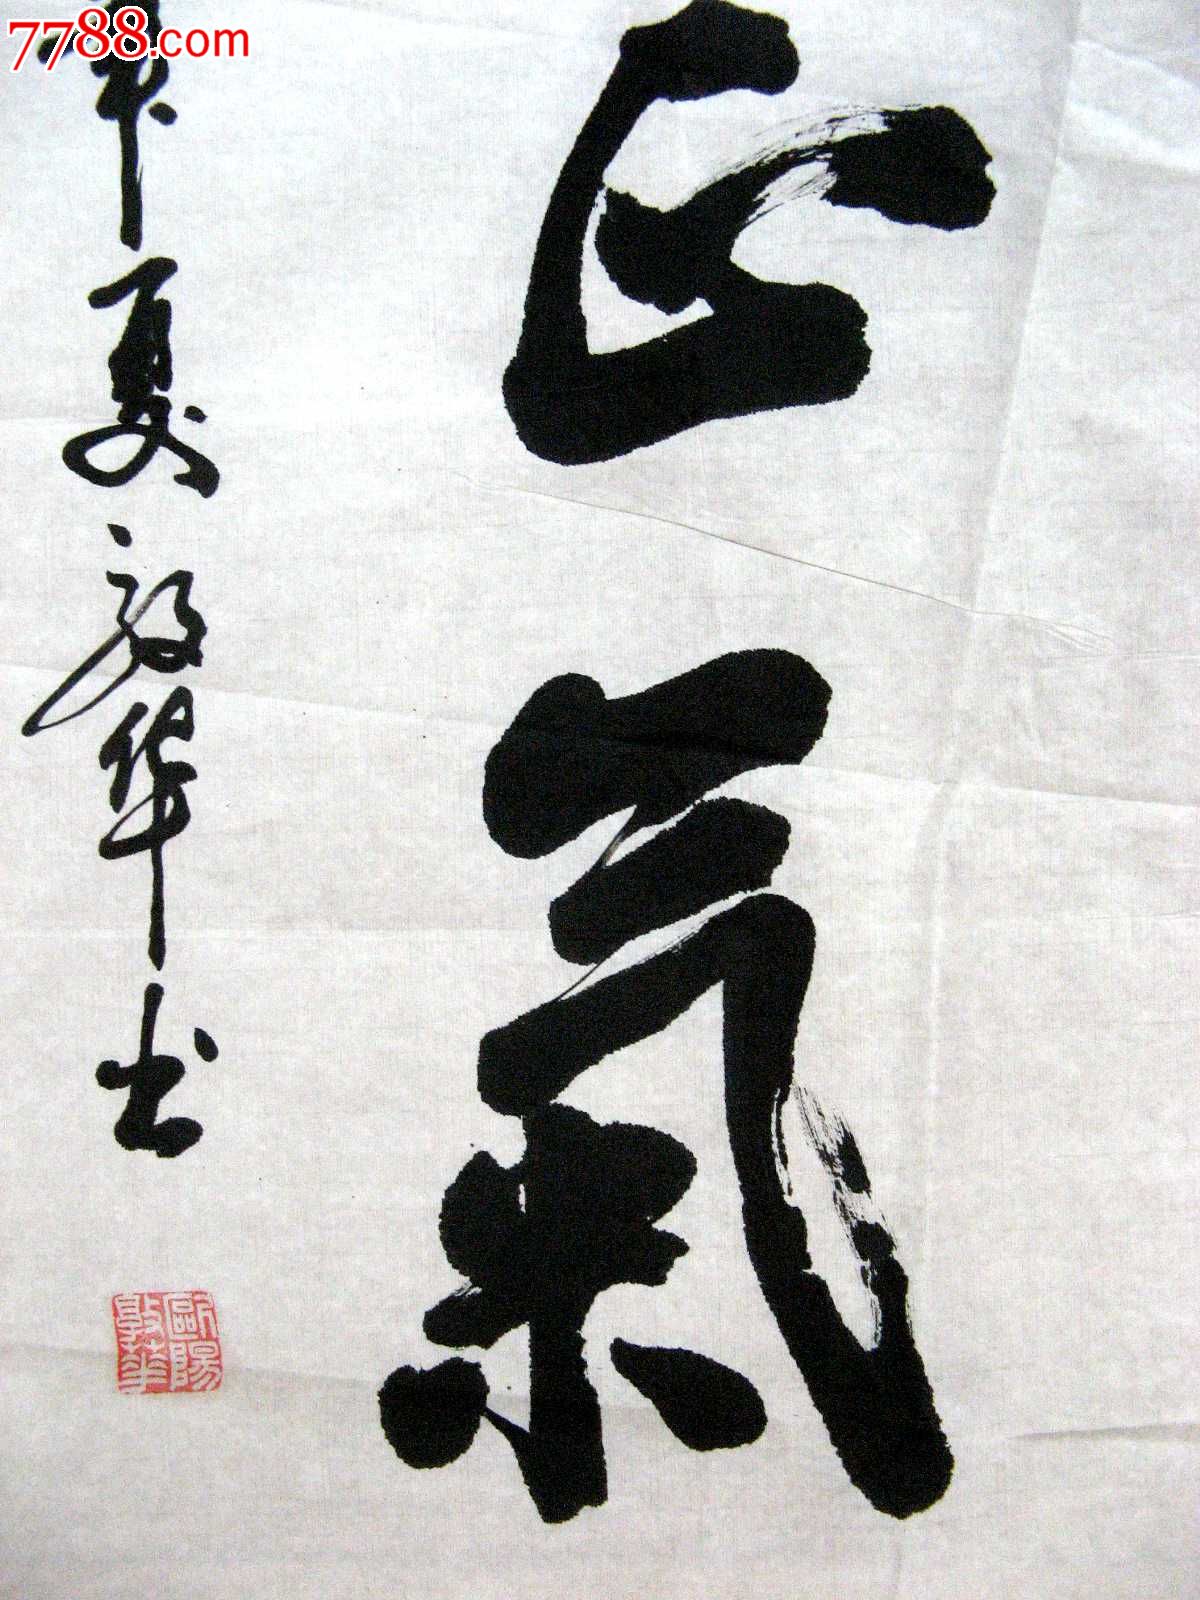 7788.com
正氣
年夏敦华书
歐陽敦華